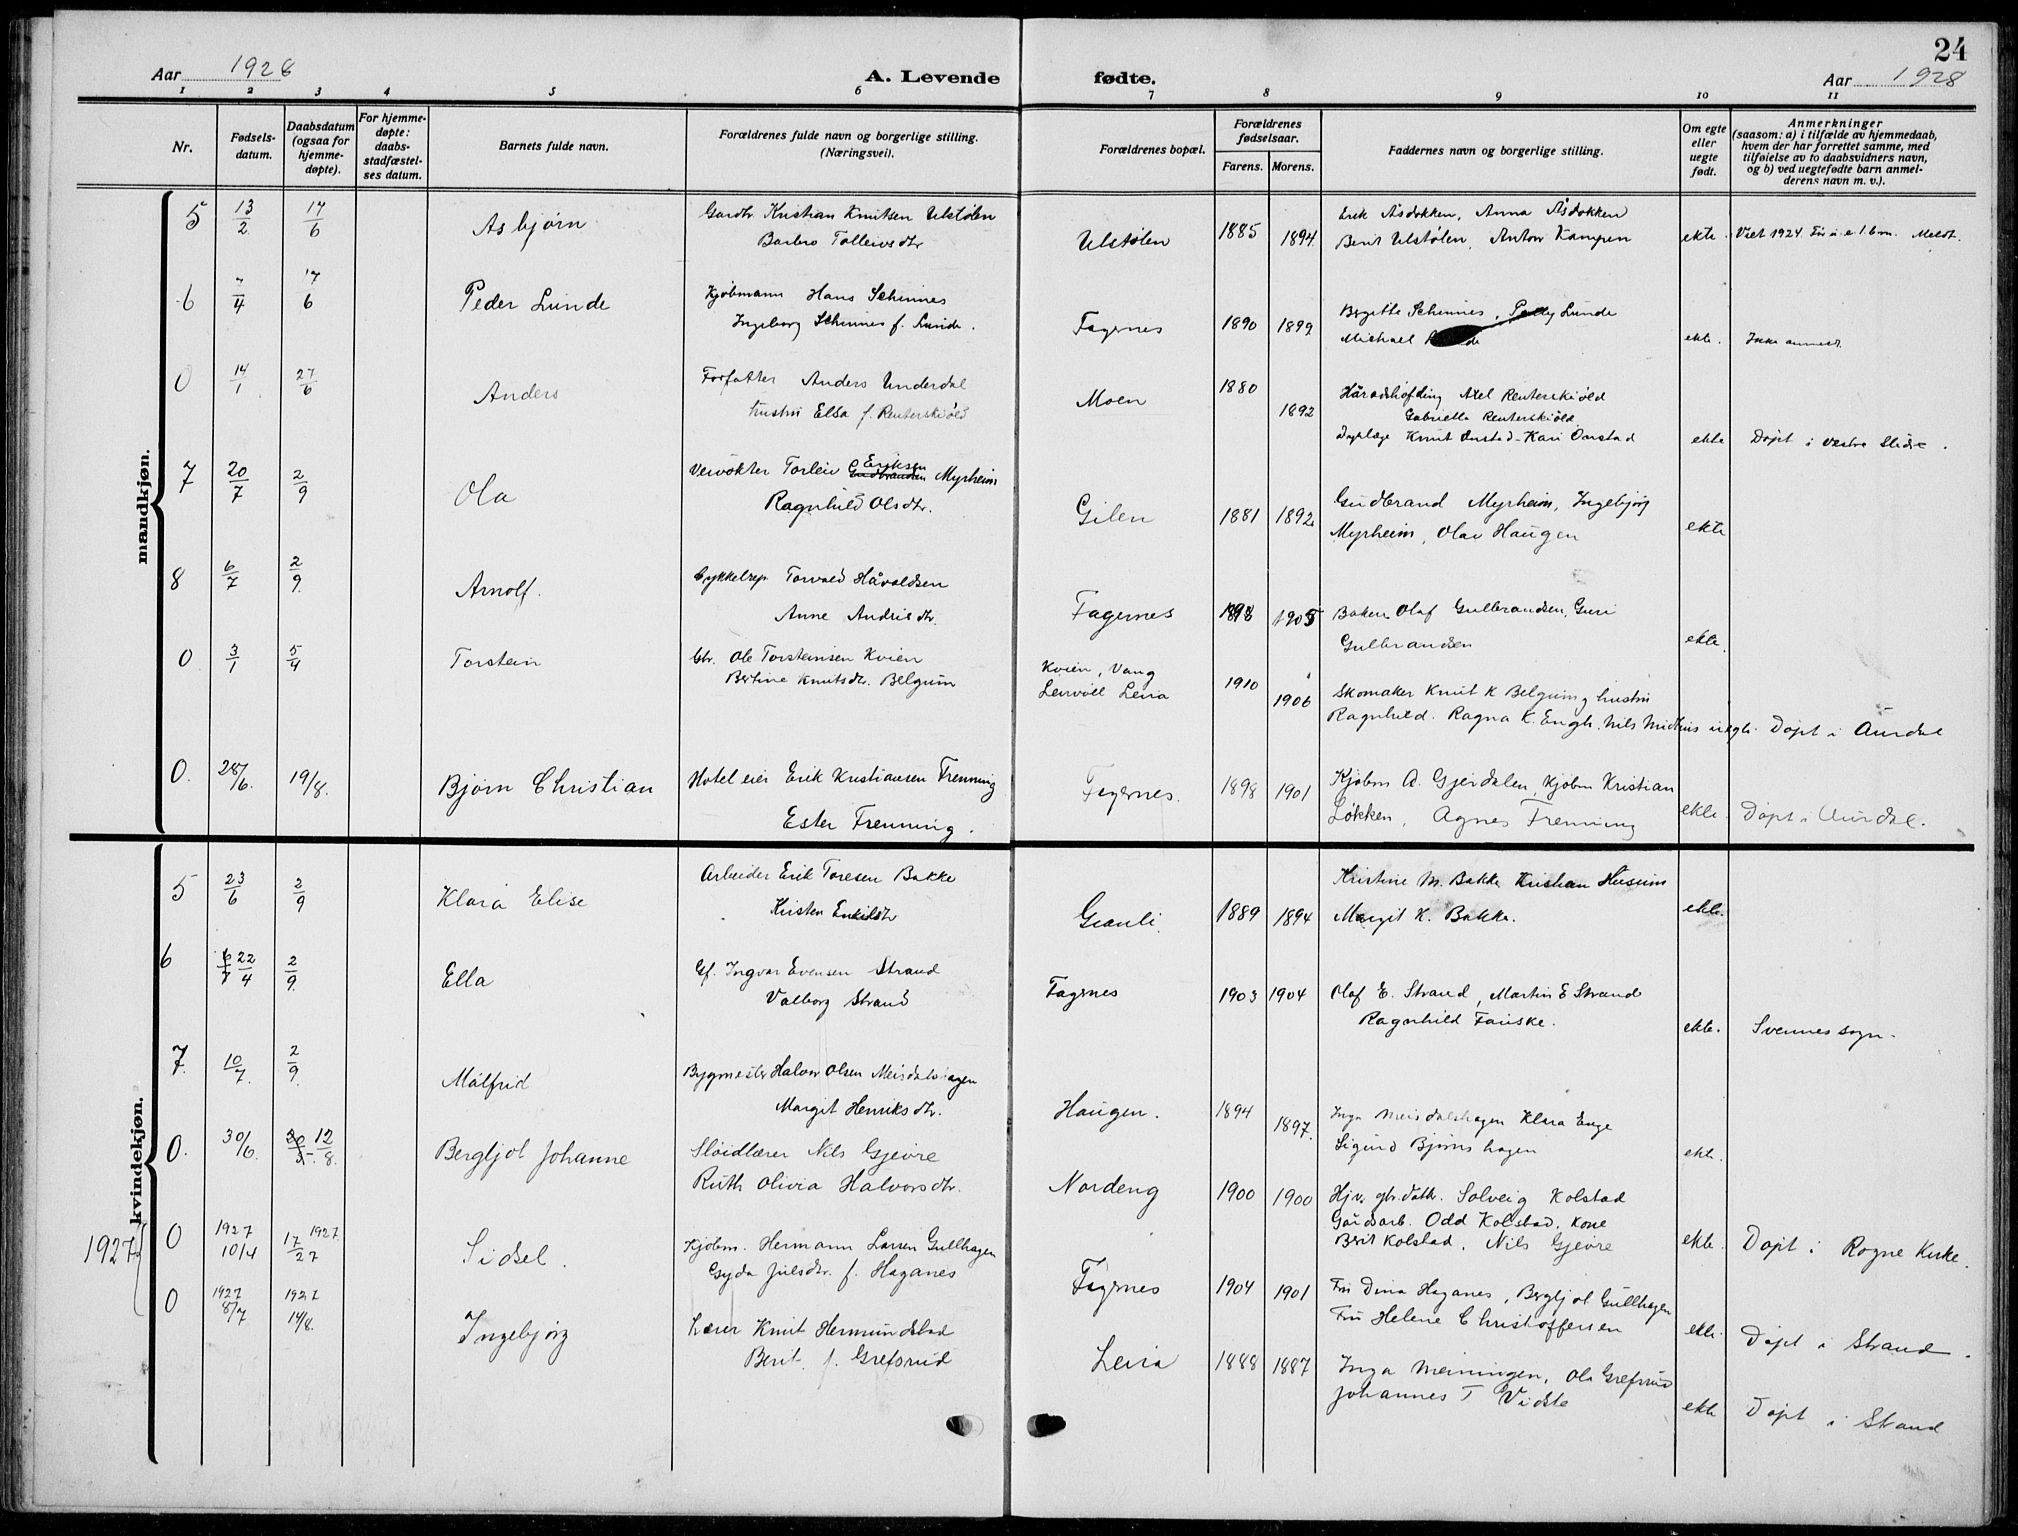 24
Aar 1928 A. Levende fødte. Aar 1928
1 2 3 4 5 6 7 8 9 10 11
Nr.
Fødsels-
datum.
Daabsdatum
(ogsaa for
hjemme-
døpte).
For hjemme-
døpte:
daabs-
stadfæstel-
ses datum.
Barnets fulde navn.
Forældrenes fulde navn og borgerlige stilling.
(Næringsvei).
Forældrenes bopæl.
Forældrenes
fødselsaar.
Farens. Morens.
Faddernes navn og borgerlige stilling.
Om egte
eller
uegte
født.
Anmerkninger
(saasom: a) i tilfælde av hjemmedaab,
hvem der har forrettet samme, med
tilføielse av to daabsvidners navn,
og b) ved uegtefødte barn anmel-
derens navn m. v.).
mandkjøn.
5 13/2 17/6 Asbjørn Gardbr. Kristian Knutsen Ulstølen
Barbro Tolleivsdtr Ulstølen 1885 1894
Erik Åsdokken, Anna Åsdokken
Berit Ulstølen, Anton Kampen ekte. Viet 1924. Meldt.
6 7/4 17/6 Peder Lunde Kjøbmann Hans Schinnes
Ingeborg Schinnes f. Lunde. Fagernes 1890 1899
Birgitte Schinnes, Lunde
Michael ekte. Ikke anmeldt
0 14/1 27/6 Anders Forfatter Anders Underdal
hustru Elsa f. Reuterskiøld Moen 1880 1892
Häradshöfding Axel Reuterskiøld
Gabriella Reuterskiöld
Knut Onstad - Kari Onstad ekte Døpt i Vestre Slidre.
7 20/7 2/9 Ola Veivokter Torleiv Eriksen Gudbrandsen Myrheim
Ragnhild Olsdtr. Gilen 1881 1892
Gudbrand Myrheim, Ingebjørg
Myrheim, Olav Haugen ekte
8 6/7 2/9 Arnolf. Sykkelrep Torvald Håvoldsen
Anne Andrisdtr. Fagernes 1898 1905
Baker Olaf Gulbrandsen, Guri
Gulbrandsen ekte.
0 3/1 5/4 Torstein Gbr. Ole Torsteinsen Kvien
Bertine Knutsdtr. Belgum
Kvien, Vang
Leirvoll Leira 1910 1906
Skomaker Knut K Belgum og hustru
Ragnhild. Ragna K. Engh. Nils Midthus uegte. Døpt i Aurdal
0. 28/6. 19/8. Bjørn Christian Hotel eier Erik Kristiansen Frenning
Ester Frenning. Fagernes. 1898 1901
Kjøbm A. Gjerdalen, Kjøbm Kristian
Løkken, Agnes Frenning ekte. Døpt i Aurdal.
kvindekjøn.
5 23/6 2/9 Klara Elise Arbeider Erik Toresen Bakke
Kristen Enkilsdtr Granli. 1889 1894
Kristine M. Bakke Kristian Husum
Margit K. Bakke. ekte.
6 6/7 22/4 2/9 Ella Gf. Ingvar Evensen Strand
Valborg Strand Fagernes 1903 1904
Olaf E. Strand, Martin E Strand
Ragnhild Fauske. ekte. Svennes sogn.
7. 10/7. 2/9. Målfrid Bygmester Halvor Olsen Meisdalshagen
Margit Henriksdtr. Haugen. 1894 1897.
Inga Meisdalshagen Klara Enge
Sigurd Bjørnshagen ekte.
0. 30/6. 12/8. Bergljot Johanne Sløidlærer Nils Gjevre
Ruth Olivia Halvorsdtr. Nordeng 1900 1900
Hjv. gbr.datt. Solveig Kolstad
Gårdsarb. Odd Kolstad, kone
Berit Kolstad. Nils Gjevre ekte. Døpt i Rogne Kirke.
1927
0 1927 10/4 17/27 1927 Sidsel. Kjøbm. Hermann Larsen Gullhagen
Gyda Julsdtr. f. Haganes Fagernes 1904 1901
Fru Dina Haganes, Bergljot Gullhagen
Fru Helene Christoffersen ekte. Døpt i Strand.
0 1927 8/7 1927 14/8. Ingebjørg Lærer Knut Hermundstad
Berit f. Grefsrud Leira 1888 1887
Inga Meiningen, Ola Grefsrud
Johannes T Vidste ekte Døpt i Strand